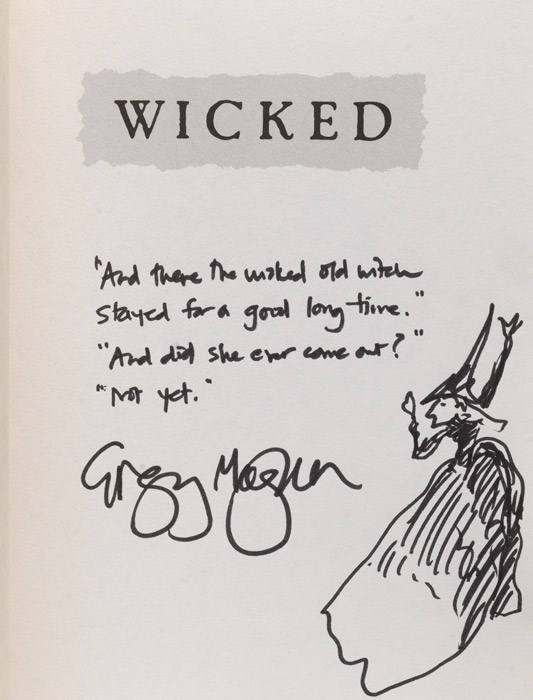 WICKED
"And there the wicked old witch
stayed for a good long time."
"And did she ever come out?"
"Not yet."
Gregory Maguire